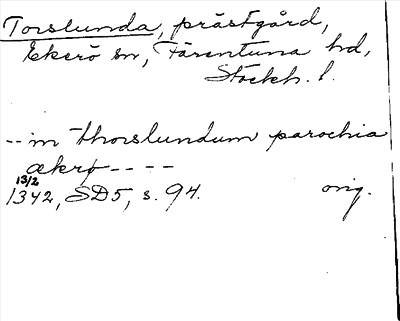 Torslunda, prästgård,
Ekerö sn, Färentuna hd,
Stockh. l.
-- in thorslundum parochia
ækrø ----
13/2
1342, SD5, s. 94. orig.